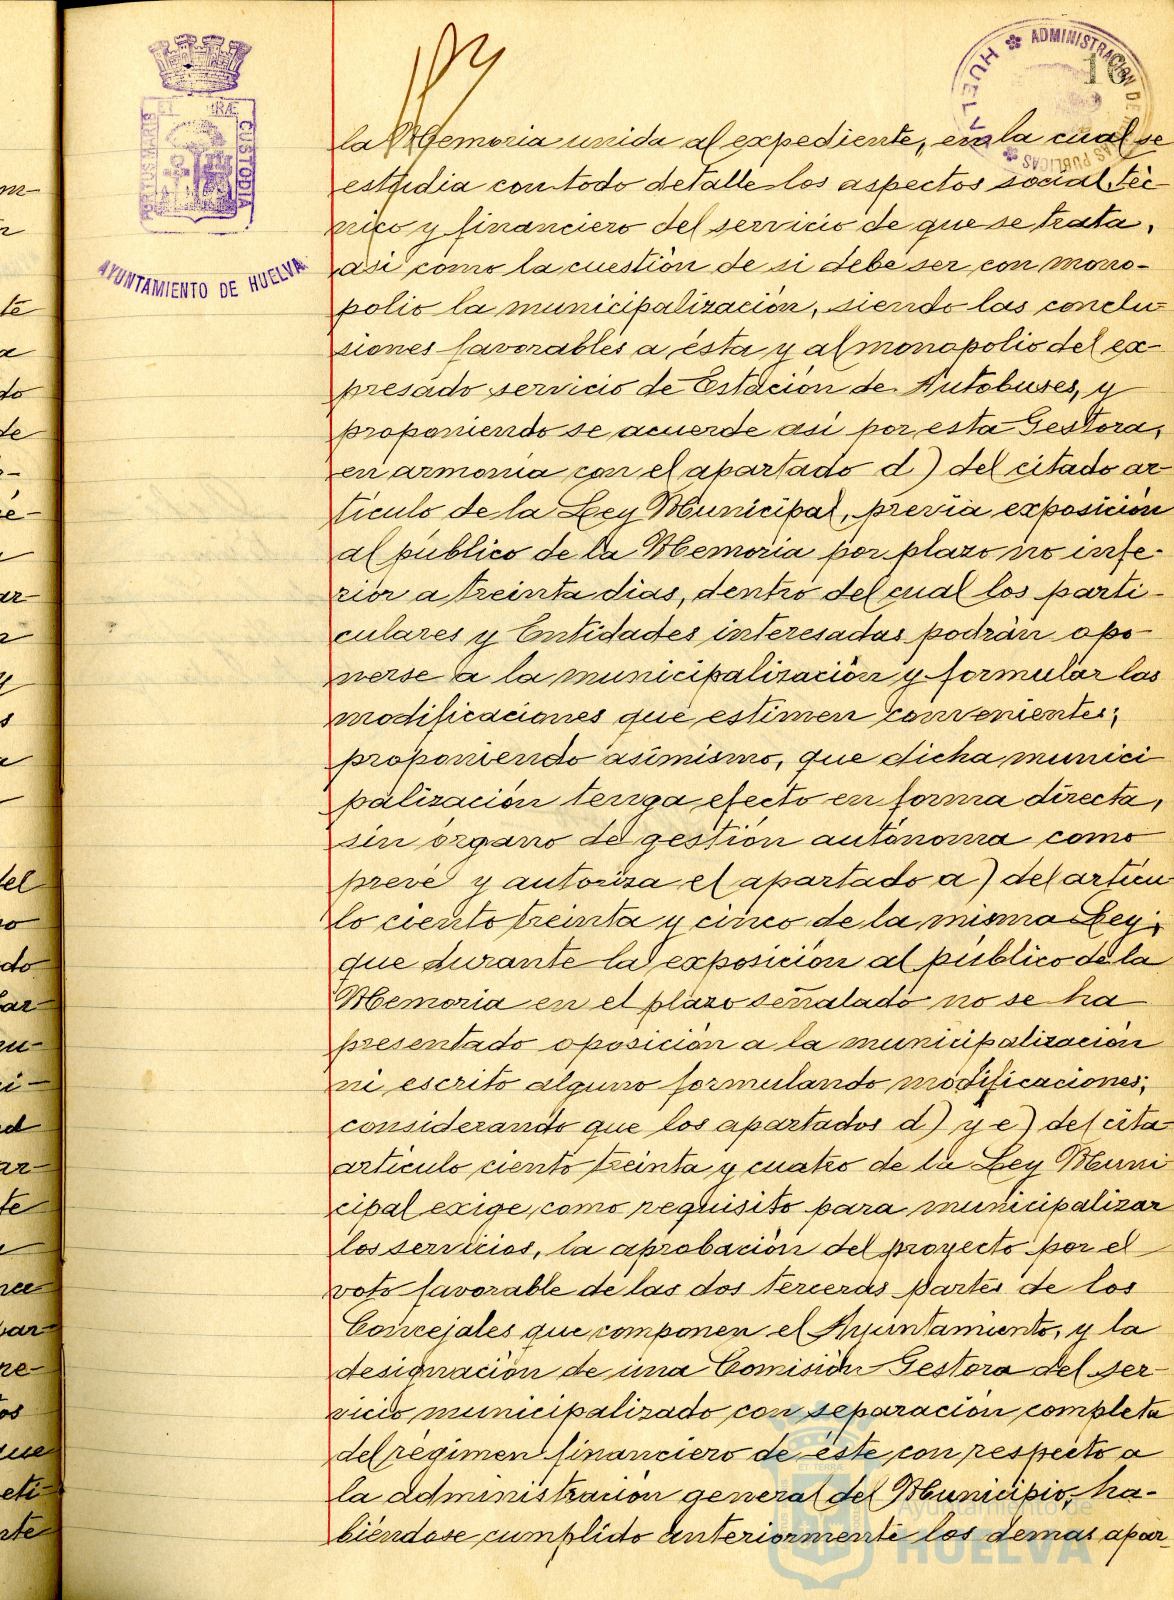 PORTUS MARIS ET TERRÆ CUSTODIA
AYUNTAMIENTO DE HUELVA
ADMINISTRACION DE
PUBLICAS
HUELVA
16
la Memoria unida al expediente, en la cual se
estudia con todo detalle los aspectos social, téc-
nico y financiero del servicio de que se trata,
asi como la cuestión de si debe ser con mono-
polio la municipalización, siendo las conclu-
siones favorables a ésta y al monopolio del ex-
presado servicio de Estación de Autobuses, y
proponiendo se acuerde así por esta Gestora,
en armonía con el apartado d) del citado ar-
tículo de la Ley Municipal, previa exposición
al público de la Memoria por plazo no infe-
rior a treinta dias, dentro del cual los parti-
culares y Entidades interesadas podrán opo-
nerse a la municipalización y formular las
modificaciones que estimen convenientes;
proponiendo asimismo, que dicha munici
palización tenga efecto en forma directa,
sin órgano de gestión autónoma como
prevé y autoriza el apartado a) del artícu
lo ciento treinta y cinco de la misma Ley;
que durante la exposición al público de la
Memoria en el plazo señalado no se ha
presentado oposición a la municipalización
ni escrito alguno formulando modificaciones;
considerando que los apartados d) y e) del cita-
artículo ciento treinta y cuatro de la Ley Muni
cipal exige como requisito para municipalizar
los servicios, la aprobación del proyecto por el
voto favorable de las dos terceras partes de los
Concejales que componen el Ayuntamiento, y la
designación de una Comisión Gestora del ser-
vicio municipalizado con separación completa
del régimen financiero de éste con respecto a
la administración general del Municipio; ha-
biéndose cumplido anteriormente los demas apar-
Ayuntamiento de
HUELVA